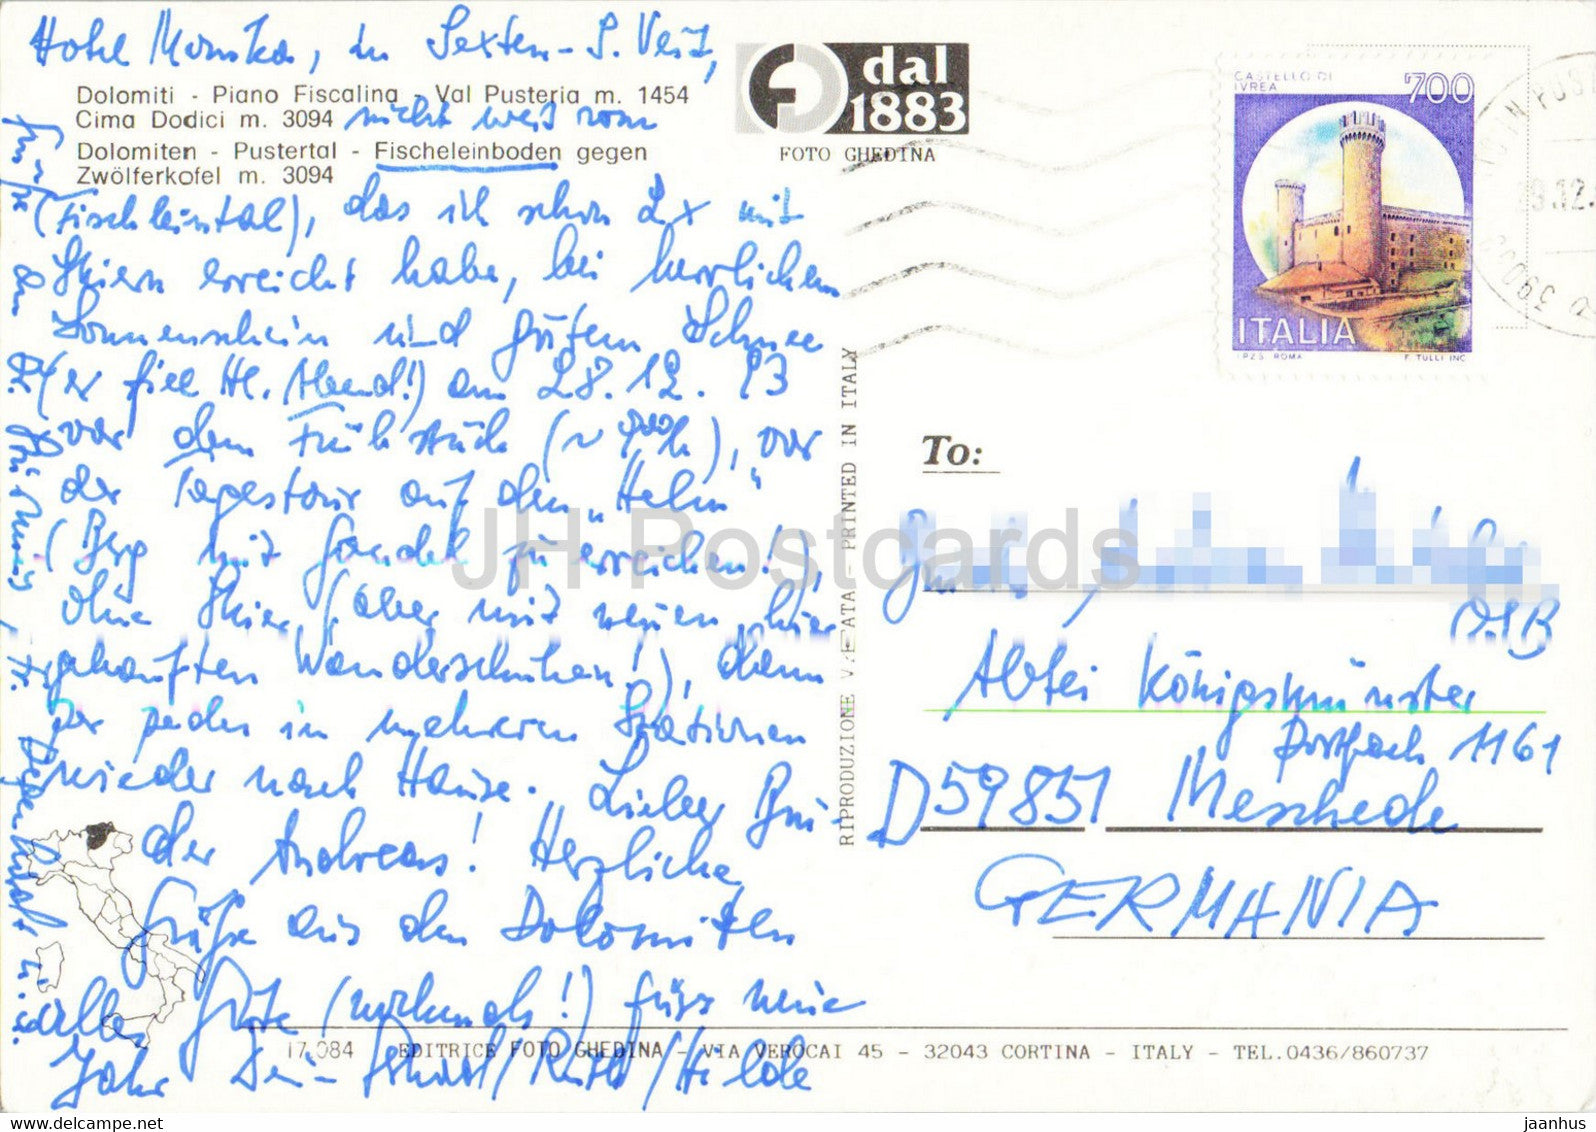 Hotel Monika, in Sexten - S. Veit,
Dolomiti - Piano Fiscalina - Val Pusteria m. 1454
Cima Dodici m. 3094 nicht weit vom
Dolomiten - Pustertal - Fischeleinboden gegen
Zwölferkofel m. 3094
(Fischleintal), das ich schon 2x mit
Skiern erreicht habe, bei herrlichem
Sonnenschein und gutem Schnee
(er fiel Hl. Abend!) am 28.12.93
vor dem Frühstück
der Tagestour auf den „Helm"
(Berg mit Gondel zu erreichen!),
ohne Skier, (aber mit neuen, hier
gekauften Wanderschuhen!), dann
per pedes in mehreren Stationen
wieder nach Hause. Lieber Bru-
der Andreas! Herzliche
Grüße aus den Dolomiten
alles Gute (nochmals!) fürs neue
Jahr Dein Ruth/Hilde
dal
1883
FOTO GHEDINA
CASTELLO DI
IVREA
700
ITALIA
I.P.Z.S. ROMA
F. TULLI INC.
39033
RIPRODUZIONE VIETATA - PRINTED IN ITALY
To:
OSB
Abtei Königsmünster
Postfach 1161
D 59851 Meschede
GERMANIA
17.084 EDITRICE FOTO GHEDINA - VIA VEROCAI 45 - 32043 CORTINA - ITALY - TEL.0436/860737
JH Postcards
jaanhus